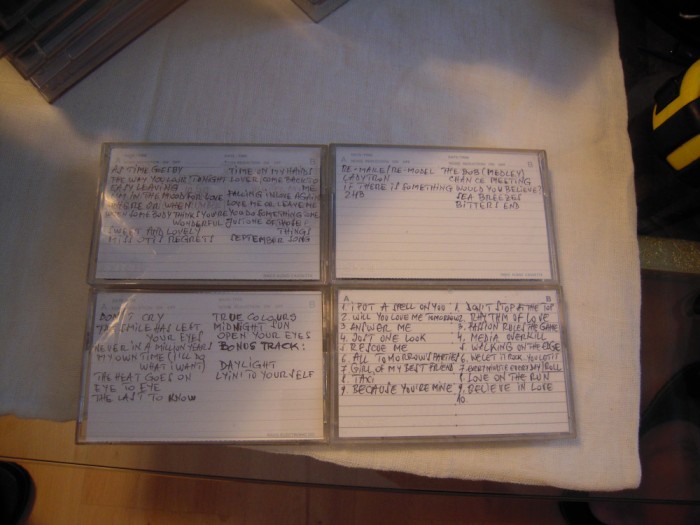 AS TIME GOES BY
THE WAY YOU LOOK TONIGHT
EASY LEAVING
I'M IN THE MOOD FOR LOVE
WHERE OR WHEN
WHEN SOMEBODY THINKS YOU'RE
WONDERFUL
SWEET AND LOVELY
MISS OTIS REGRETS
TIME ON MY HANDS
LOVER COME BACK TO
ME
FALLING IN LOVE AGAIN
LOVE ME OR LEAVE ME
YOU DO SOMETHING TO ME
JUST ONE OF THOSE
THINGS
SEPTEMBER SONG
RE-MAKE/RE-MODEL
LADYTRON
IF THERE IS SOMETHING
2HB
THE BOB (MEDLEY)
CHANCE MEETING
WOULD YOU BELIEVE?
SEA BREEZES
BITTERS END
DON'T CRY
THE SMILE HAS LEFT
YOUR EYES
NEVER IN A MILLION YEARS
MY OWN TIME (I'LL DO
WHAT I WANT)
THE HEAT GOES ON
EYE TO EYE
THE LAST TO KNOW
TRUE COLOURS
MIDNIGHT SUN
OPEN YOUR EYES
BONUS TRACK:
DAYLIGHT
LYIN' TO YOURSELF
A
1. I PUT A SPELL ON YOU
2. WILL YOU LOVE ME TOMORROW
3. ANSWER ME
4. JUST ONE LOOK
5. RESCUE ME
6. ALL TOMORROWS PARTIES
7. GIRL OF MY BEST FRIEND
8. TAXI
9. BECAUSE YOU'RE MINE
B
1. DON'T STOP AT THE TOP
2. RHYTHM OF LOVE
3. PASSION RULES THE GAME
4. MEDIA OVERKILL
5. WALKING ON THE EDGE
6. WE LET IT ROCK YOU LET IT
ROLL
7. EVERY MINUTE EVERY DAY
8. LOVE ON THE RUN
9. BELIEVE IN LOVE
10.